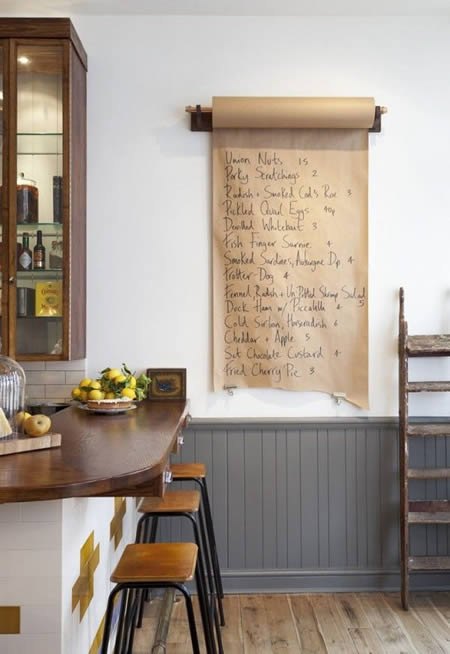 Union Nuts 1s
Porky Scratchings 2
Radish + Smoked Cod's Roe 3
Pickled Quail Eggs 40p
Devilled Whitebait 3
Fish Finger Sarnie 4
Smoked Sardines, Aubergine Dip 4
Trotter Dog 4
Fennel, Radish + Un-Potted Shrimp Salad 5
Duck Ham w/ Piccalilli 4
Cold Sirloin, Horseradish 6
Cheddar + Apple 5
Set Chocolate Custard 4
Fried Cherry Pie 3